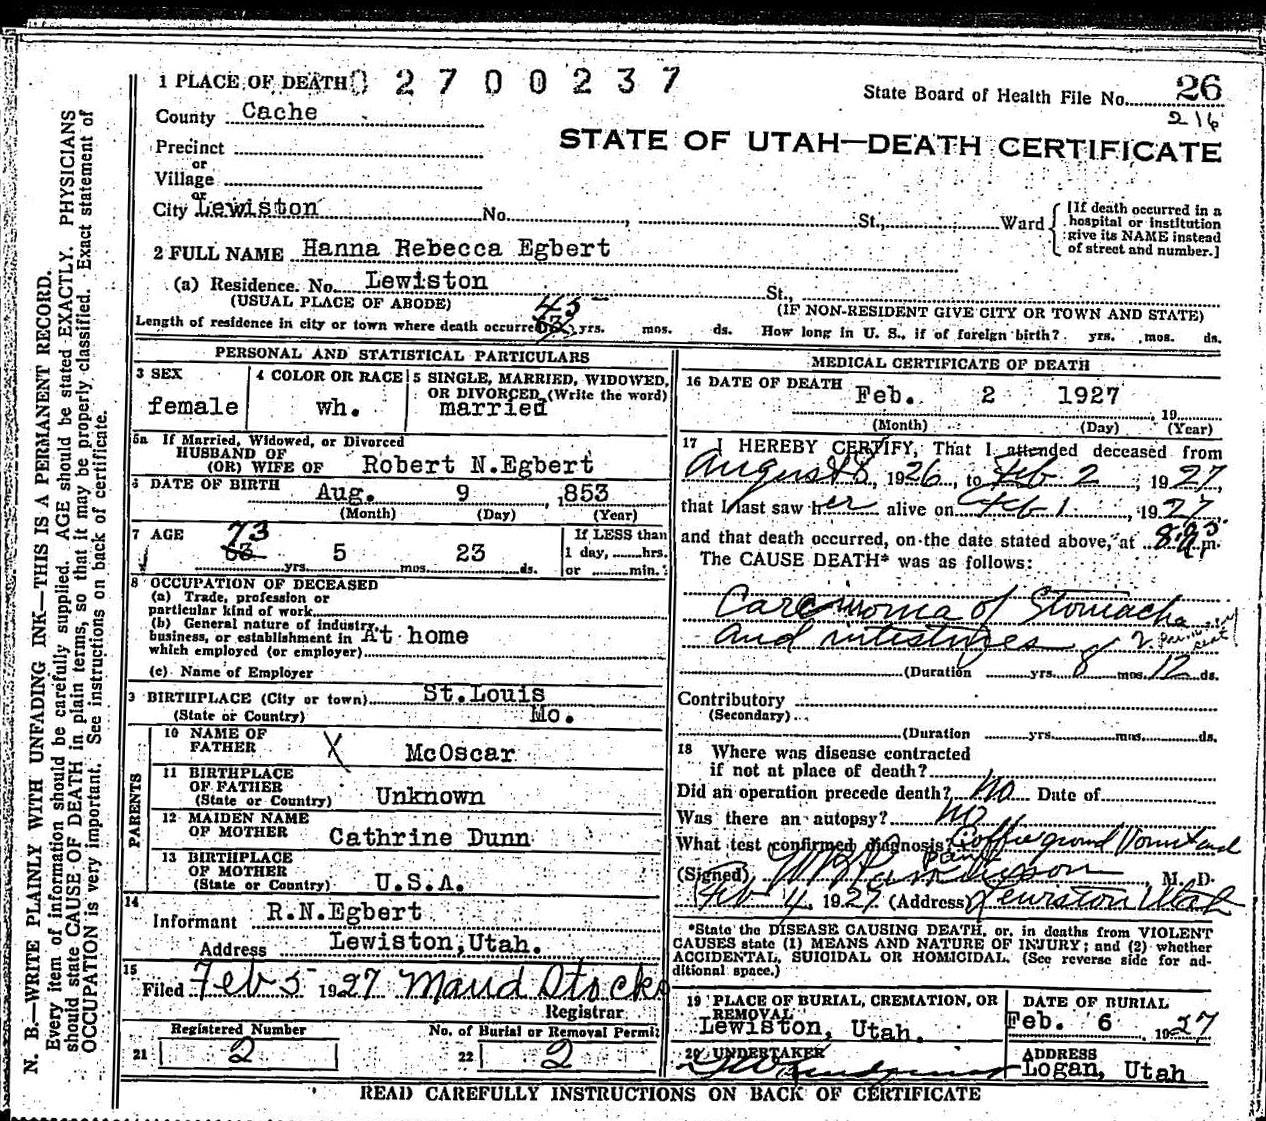 N. B.—WRITE PLAINLY WITH UNFADING INK—THIS IS A PERMANENT RECORD.
Every item of information should be carefully supplied. AGE should be stated EXACTLY. PHYSICIANS
should state CAUSE OF DEATH in plain terms, so that it may be properly classified. Exact statement of
OCCUPATION is very important. See instructions on back of certificate.
1 PLACE OF DEATH 0 2 7 0 0 2 3 7
State Board of Health File No. 26
216
County Cache
STATE OF UTAH—DEATH CERTIFICATE
Precinct
or
Village
or
City Lewiston No. , St., Ward
[If death occurred in a
hospital or institution
give its NAME instead
of street and number.]
2 FULL NAME Hanna Rebecca Egbert
(a) Residence. No. Lewiston St.,
(USUAL PLACE OF ABODE) (IF NON-RESIDENT GIVE CITY OR TOWN AND STATE)
43
Length of residence in city or town where death occurred yrs. mos. ds. How long in U. S., if of foreign birth? yrs. mos. ds.
PERSONAL AND STATISTICAL PARTICULARS
3 SEX
female
4 COLOR OR RACE
wh.
5 SINGLE, MARRIED, WIDOWED,
OR DIVORCED (Write the word)
married
5a If Married, Widowed, or Divorced
HUSBAND OF
(OR) WIFE OF Robert N.Egbert
6 DATE OF BIRTH Aug. 9 ,1853
(Month) (Day) (Year)
7 AGE 73
63 yrs. 5 mos. 23 ds.
If LESS than
1 day, hrs.
or min.
8 OCCUPATION OF DECEASED
(a) Trade, profession or
particular kind of work
(b) General nature of industry,
business, or establishment in At home
which employed (or employer)
(c) Name of Employer
9 BIRTHPLACE (City or town) St.Louis
(State or Country) Mo.
PARENTS
10 NAME OF
FATHER X McOscar
11 BIRTHPLACE
OF FATHER
(State or Country) Unknown
12 MAIDEN NAME
OF MOTHER Cathrine Dunn
13 BIRTHPLACE
OF MOTHER
(State or Country) U.S.A.
14
Informant R.N.Egbert
Address Lewiston,Utah.
15
Filed Feb 5 1927 Maud Stocks
Registrar
Registered Number
21 2
No. of Burial or Removal Permit
22 2
MEDICAL CERTIFICATE OF DEATH
16 DATE OF DEATH Feb. 2 1927
, 19
(Month) (Day) (Year)
17 I HEREBY CERTIFY, That I attended deceased from
August 8, 1926, to Feb 2, 1927,
that I last saw her alive on Feb 1, 1927
and that death occurred, on the date stated above, at m.
The CAUSE DEATH* was as follows:
Carcinoma of Stomach
and intestines
(Duration yrs. 8 mos. 12 ds.
Contributory
(Secondary)
(Duration yrs. mos. ds.
18 Where was disease contracted
if not at place of death?
Did an operation precede death? No Date of
Was there an autopsy? No
What test confirmed diagnosis? Coffee ground Vomit and
pain
(Signed) Parkinson, M. D.
Feb 4, 1927 (Address) Lewiston Utah
*State the DISEASE CAUSING DEATH, or, in deaths from VIOLENT
CAUSES state (1) MEANS AND NATURE OF INJURY; and (2) whether
ACCIDENTAL, SUICIDAL OR HOMICIDAL. (See reverse side for ad-
ditional space.)
19 PLACE OF BURIAL, CREMATION, OR
REMOVAL
Lewiston, Utah.
DATE OF BURIAL
Feb. 6, 1927
20 UNDERTAKER
ADDRESS
Logan, Utah
READ CAREFULLY INSTRUCTIONS ON BACK OF CERTIFICATE